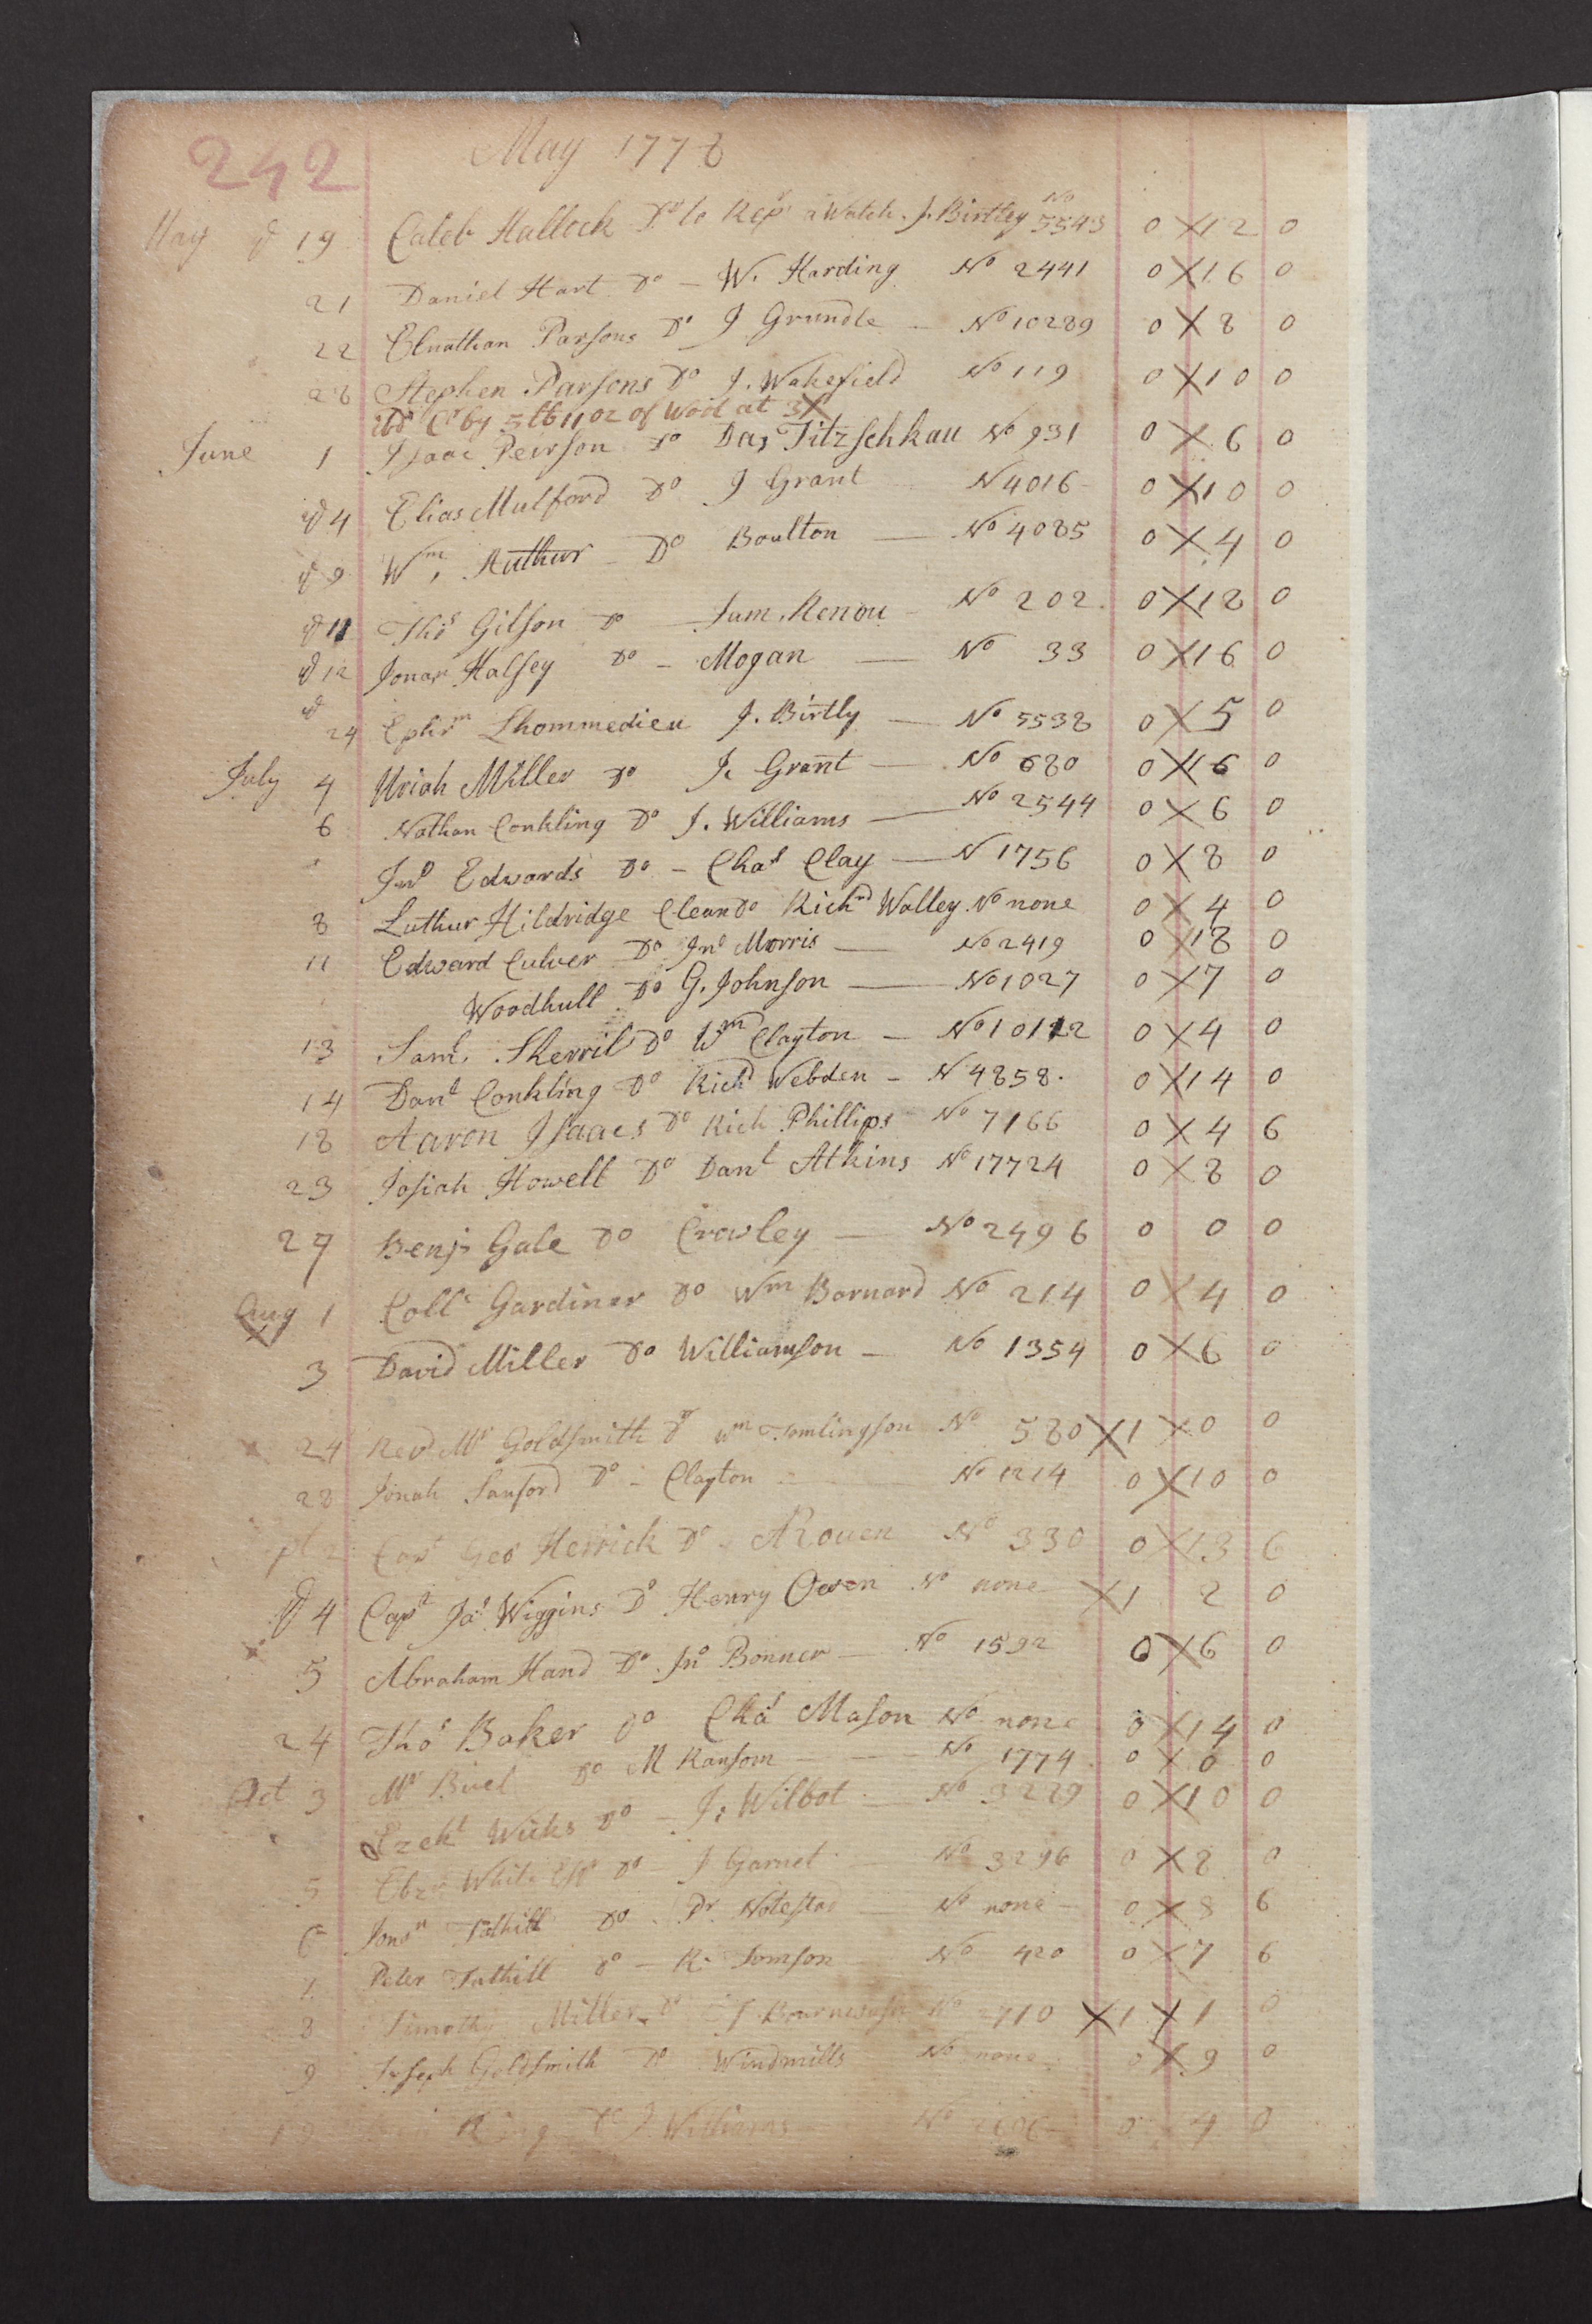 242 May 1778
May 19 Caleb Hallock Dr to Repr a Watch. J. Birtley No 5543 0 12 0
21 Daniel Hart Do – W. Harding No 2441 0 16 0
22 Elnathan Parsons Do J Grundle – No 10289 0 8 0
28 Stephen Parsons Do J. Wakefield No 119 0 10 0
Cr by 5 lb 11 oz of Wool at 3/
June 1 Isaac Peirson Do Das Titzschkau No 931 0 6 0
4 Elias Mulford Do J Grant N 4016 0 10 0
9 Wm, Authur – Do Boulton — No 4085 0 4 0
11 Thos Gilson Do Sam. Renou – No 202 0 12 0
12 Jonan Halsey Do – Mogan — No 33 0 16 0
24 Ephrm Lhommedieu J. Birtly — No 5538 0 5 0
July 4 Uriah Miller Do J. Grant — No 680 0 16 0
6 Nathan Conkling Do J. Williams — No 2544 0 6 0
Jno Edwards Do – Chas Clay — N 1756 0 8 0
8 Luthur Hildridge Clean Do Richd Walley. No none 0 4 0
11 Edward Culver Do Jno Morris — No 2419 0 18 0
Woodhull Do G. Johnson — No 1027 0 7 0
13 Saml. Sherril Do Wm Clayton – No 10122 0 4 0
14 Danl Conkling Do Richd Webden – N 4858. 0 14 0
18 Aaron Isaacs Do Rich Phillips No 7166 0 4 6
23 Josiah Howell Do Danl Atkins No 17724 0 8 0
27 Benj. Gale Do Crowley — No 2496 0 0 0
Aug 1 Coll. Gardiner Do Wm Barnard No 214 0 4 0
3 David Miller Do Williamson – No 1354 0 6 0
24 Revd Mr Goldsmith Dr Wm Tomlingson No 580 1 0 0
28 Jonah Sanford Do – Clayton No 1214 0 10 0
2 Capt Geo Herrick Do Rouen No 330 0 13 6
4 Capt Jas Wiggins Do Henry Owen No none 1 2 0
5 Abraham Hand Do. Jno Bonner — No 1592 0 6 0
24 Thos Baker Do Chas Mason No none 0 14 0
Oct 3 Mr Buel Do M Ransom – – No 1774 0 0 0
Ezekl Wicks Do – J. Wilbot — No 3229 0 10 0
5 Ebzr White Do – J Garnet — No 3296 0 8 0
6 Jonan Tuthill Do No none 0 8 6
7 Peter Tuthill Do – R. Tomson No 420 0 7 6
8 Timothy Miller Do No 2710 1 1 0
9 Joseph Goldsmith Do Windmills No none 0 9 0
King Do J Williams No 0 4 0